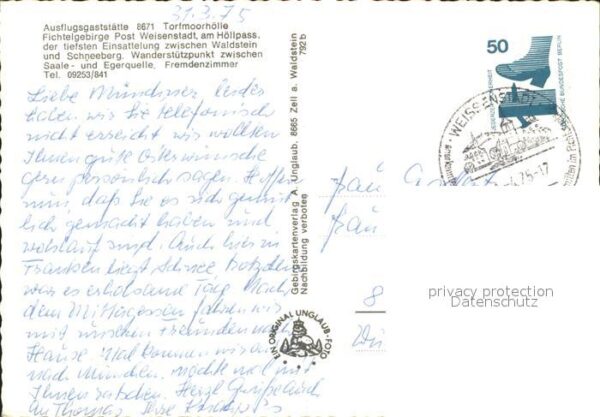 31.3.75
Ausflugsgaststätte 8671 Torfmoorhölle
Fichtelgebirge Post Weisenstadt, am Höllpass,
der tiefsten Einsattelung zwischen Waldstein
und Schneeberg. Wanderstützpunkt zwischen
Saale- und Egerquelle. Fremdenzimmer
Tel. 09253/841
Liebe Münchner leider
haben wir Sie telefonisch
nicht erreicht wir wollten
Ihnen gute Osterwünsche
gern persönlich sagen. Hoffen
nun, daß Sie es sich gemüt-
lich gemacht haben und
wohlauf sind. Auch hier in
Franken liegt Schnee, trotzdem
war es erholsame Tag. Nach
dem Mittagessen fahren wir
mit unseren Freunden nach
Hause. Mal kommen wir
nach München, möchte mal mit
Ihnen ratschen. Herzl.
Thomas Ihre
Gebirgskartenverlag A. Unglaub, 8665 Zell a. Waldstein
Nachbildung verboten
792b
EIN ORIGINAL UNGLAUB-FOTO
50
DEUTSCHE BUNDESPOST BERLIN
WEISSENSTADT
Frau
Frau
8
privacy protection
Datenschutz